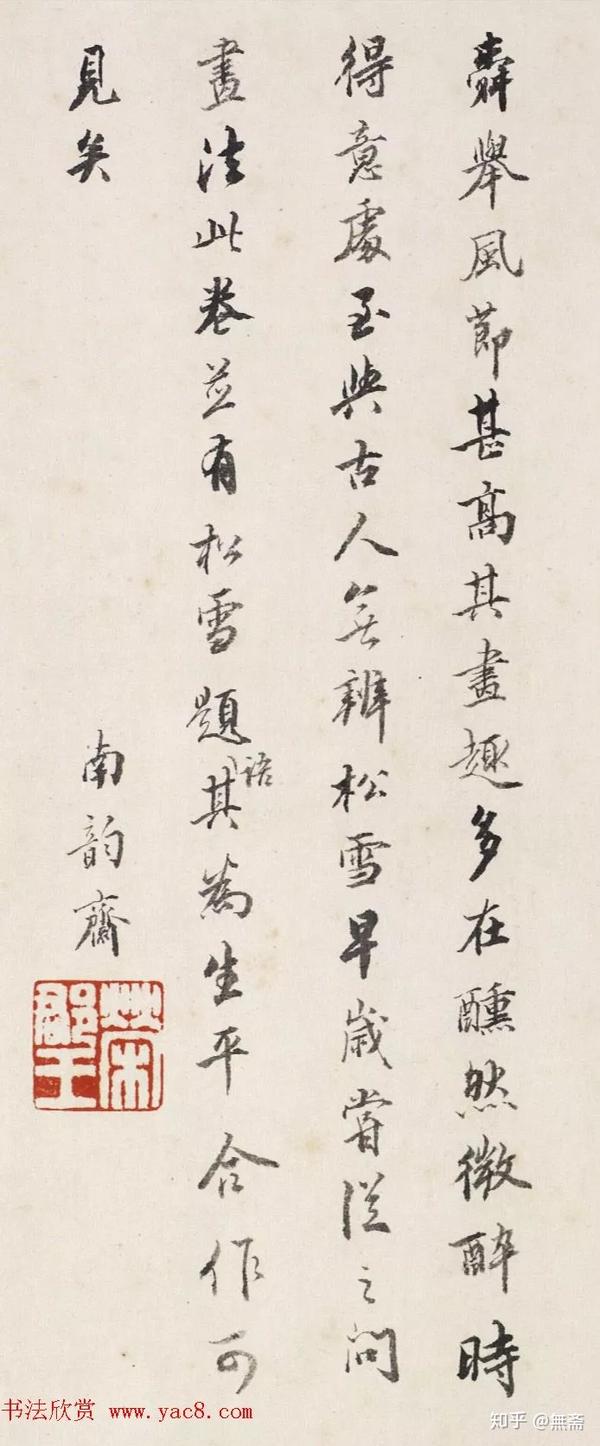 舜舉風節甚高其畫趣多在醺然微醉時
得意處至與古人無辨松雪早歲嘗從之問
畫法此卷並有松雪題語其為生平合作可
見矣
南韵齋
榮郡王
书法欣赏 www.yac8.com
知乎 @無斋